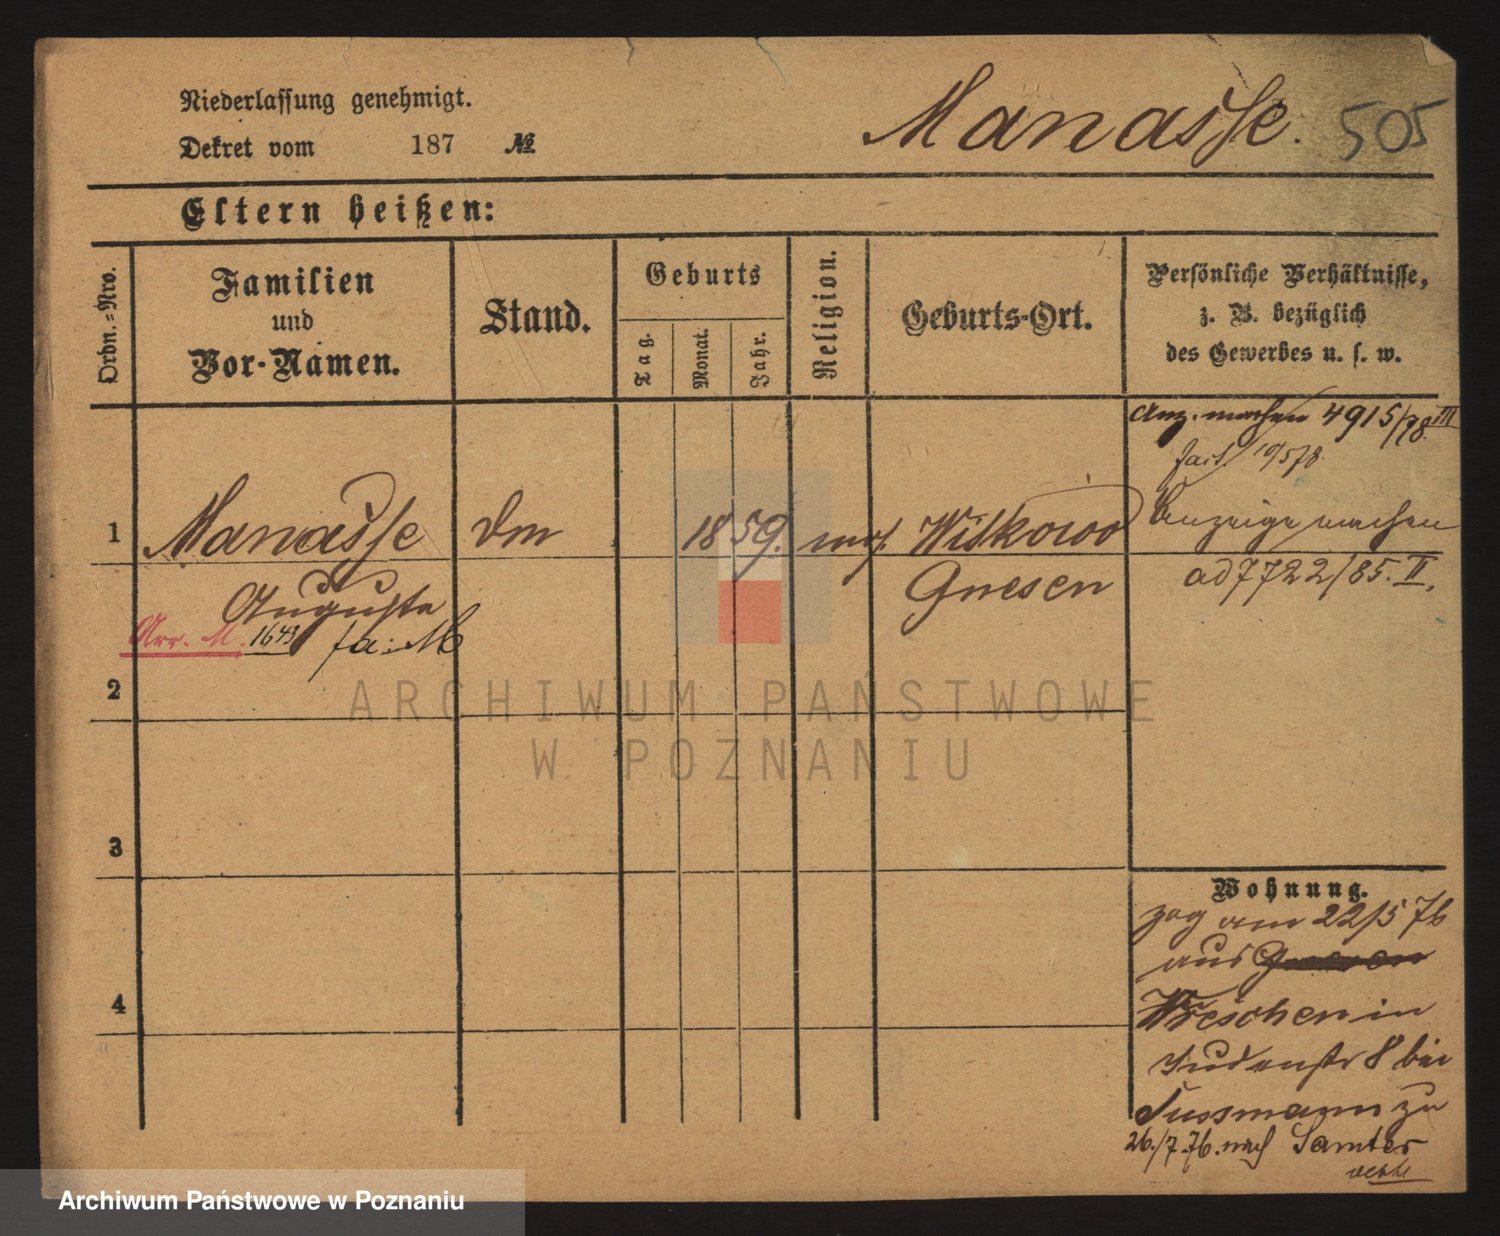 Niederlassung genehmigt.
Dekret vom 187 №
Manasse. 505
Eltern heißen:
Ordn.-Nro.
Familien
und
Vor-Namen.
Stand.
Geburts
Tag.
Monat.
Jahr.
Religion.
Geburts-Ort.
Persönliche Verhältnisse,
z. B. bezüglich
des Gewerbes u. s. w.
Anz. machen 4915/78 III
1 Manasse 1859. mos. Witkowo
Anzeige machen
Auguste Gnesen
ad 7722/85. II.
Arr. M. 1643 fa: M
2
3
4
Wohnung.
zog am 22/5 76
aus Gnesen
Wreschen in
Judenstr 8 bei
Sussmann zu
26./7.76. nach Samter
ARCHIWUM PAŃSTWOWE
W POZNANIU
Archiwum Państwowe w Poznaniu